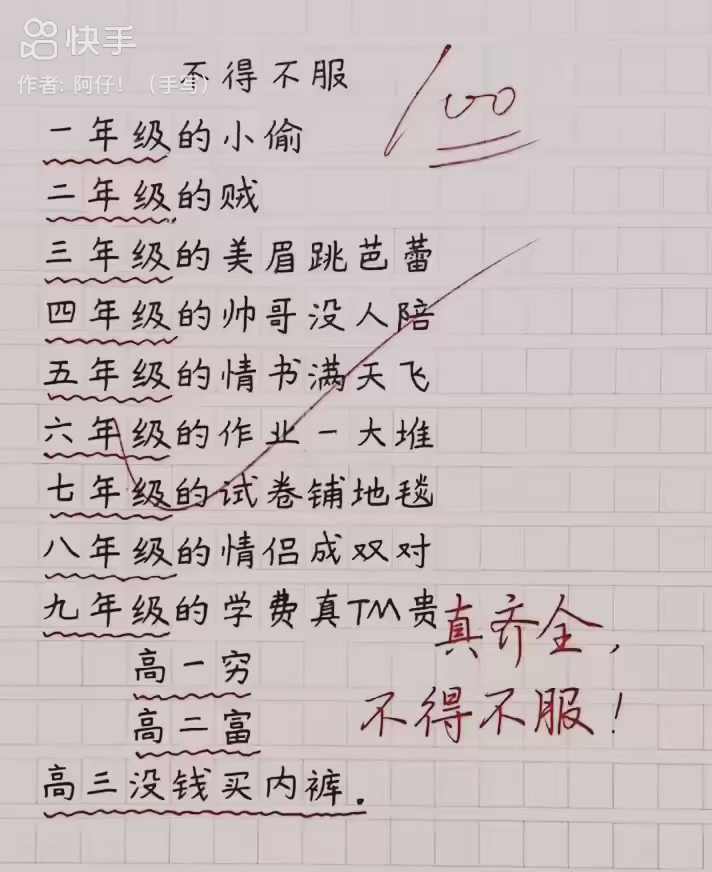 快手
作者: 阿仔！（手写）
不得不服
100
一年级的小偷
二年级的贼
三年级的美眉跳芭蕾
四年级的帅哥没人陪
五年级的情书满天飞
六年级的作业一大堆
七年级的试卷铺地毯
八年级的情侣成双对
九年级的学费真TM贵
真齐全，
高一穷
不得不服！
高二富
高三没钱买内裤.